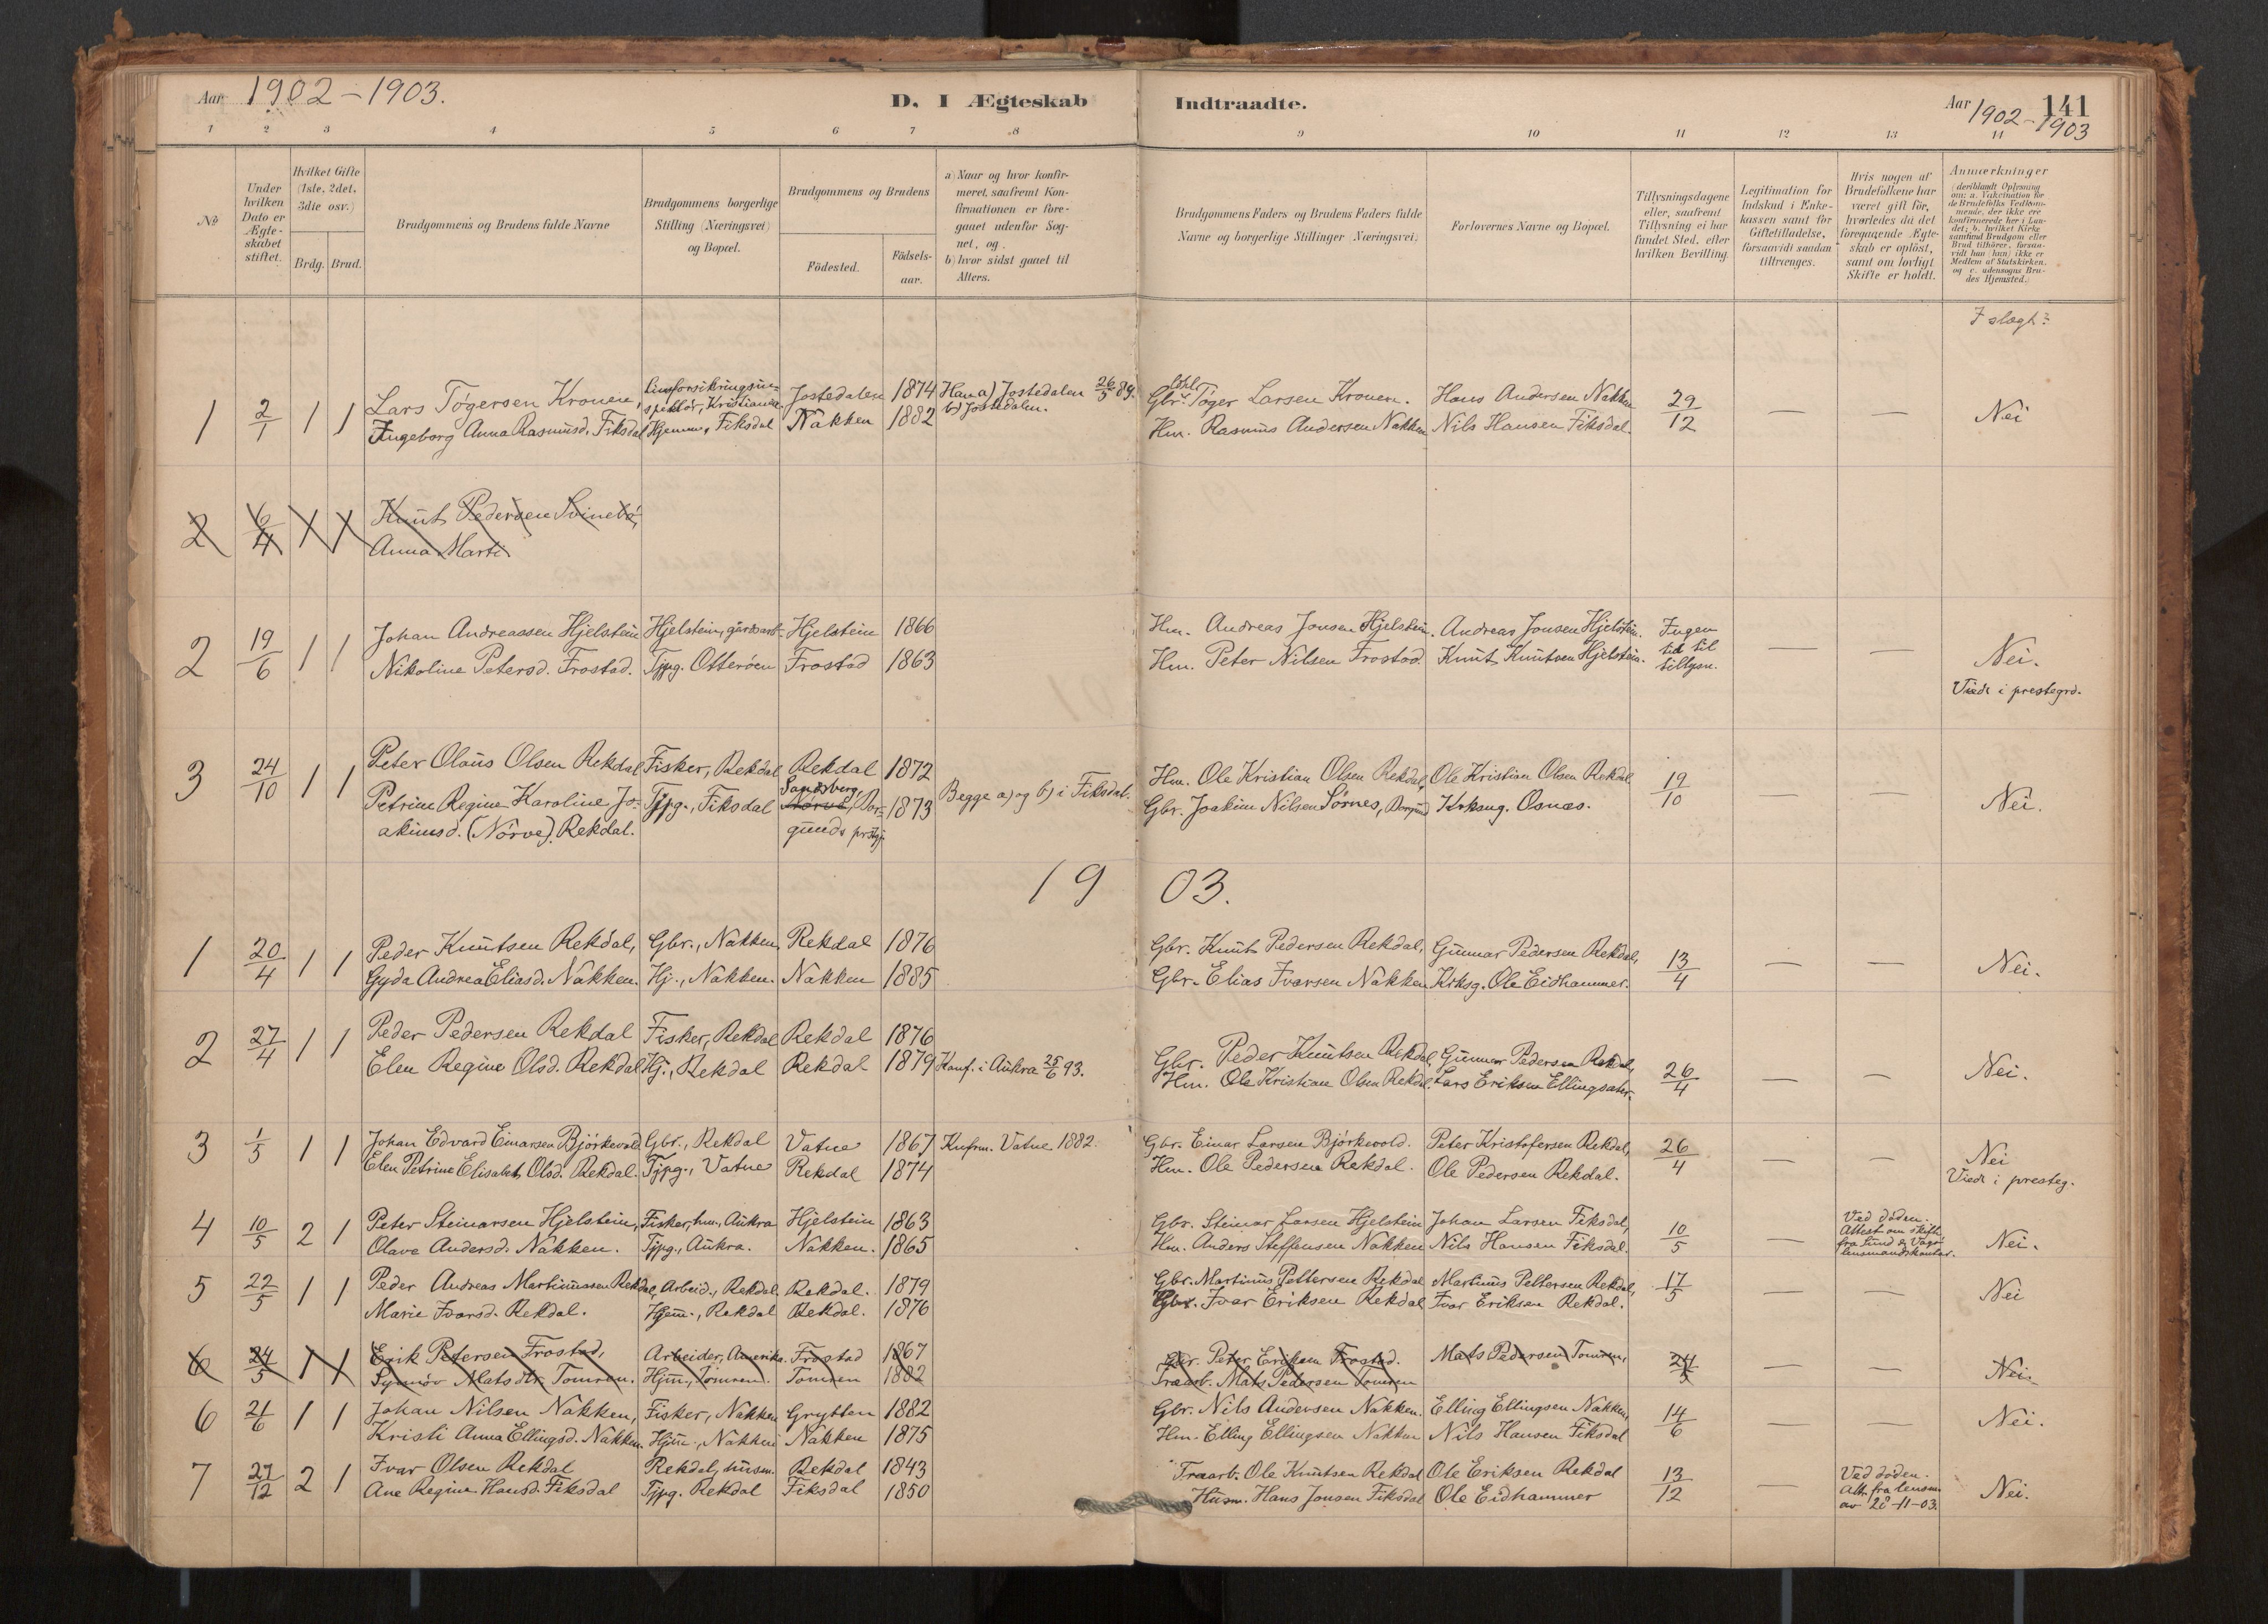 Aar 1902-1903.
D. I Ægteskab Indtraadte.
Aar 1902-1903
141
1 2 3 4 5 6 7 8 9 10 11 12 13 14
№
Under hvilken Dato er Ægteskabet stiftet.
Hvilket Gifte (1ste, 2det, 3die osv.)
Brdg. Brud.
Brudgommens og Brudens fulde Navne
Brudgommens borgerlige Stilling (Næringsvei) og Bopæl.
Brudgommens og Brudens
Födested.
Födsels-aar.
a) Naar og hvor konfir-
meret, saafremt Kon-
firmationen er fore-
gaaet udenfor Sog-
net, og
b) hvor sidst gaaet til
Alters.
Brudgommens Faders og Brudens Faders fulde
Navne og borgerlige Stillinger (Næringsvei)
Forlovernes Navne og Bopæl.
Tillysningsdagene
eller, saafremt
Tillysning ei har
fundet Sted, efter
hvilken Bevilling.
Legitimation for
Indskud i Enke-
kassen samt for
Giftetilladelse,
forsaavidt saadan
tiltrænges.
Hvis nogen af
Brudefolkene har
været gift før,
hvorledes da det
foregaaende Ægte-
skab er oplöst,
samt om lovligt
Skifte er holdt.
Anmærkninger
(deriblandt Oplysning
om: a. Vakcination for
de Brudefolks Vedkom-
mende, der ikke ere
konfirmerede her i Lan-
det; b. hvilket Kirke-
samfund Brudgom eller
Brud tilhörer, forsaa-
vidt han (hun) ikke er
Medlem af Statskirken,
og c. udensogns Bru-
des Hjemsted.)
I slegt?
1 2/1 1 1 Lars Tøgersen Kronen, Livsforsikringsin-
spektør, Kristiania. Jostedalen 1874 Han a) Jostedalen 26/5 89. Tøger Larsen Kronen. Hans Andersen Nakken 29/12 — — Nei
Ingeborg Anna Rasmusd. Fiksdal Hjemme, Fiksdal Nakken 1882 b) Jostedalen. Hm. Rasmus Andersen Nakken Nils Hansen Fiksdal.
2 6/4 1 1 Knut Pedersen Svinebø,
Anna Marti
2 19/6 1 1 Johan Andreassen Hjelstein Hjelstein, gårdsarb. Hjelstein 1866 Hm. Andreas Jonsen Hjelstein. Andreas Jonsen Hjelstein. Ingen
tid til
tillysn. — — Nei.
Nikoline Petersd. Frostad. Tjpg. Otterøen Frostad 1863 Hm. Peter Nilsen Frostad. Knut Knutsen Hjelstein.
Viede i prestegrd.
3 24/10 1 1 Peter Olaus Olsen Rekdal Fisker, Rekdal Rekdal 1872 Begge a) og b) i Fiksdal. Hm. Ole Kristian Olsen Rekdal, Ole Kristian Olsen Rekdal 19/10 — — Nei.
Petrine Regine Karoline Jo-
akimsd. (Nørve) Rekdal. Tjpg., Fiksdal Sandsberg, Nørve, Bor-
gunds prstgj. 1873 Gbr. Joakim Nilsen Sørnes, Borgund Krksng. Osnæs.
1903.
1 20/4 1 1 Peder Knutsen Rekdal, Gbr., Nakken Rekdal 1876 Gbr. Knut Pedersen Rekdal, Gunnar Pedersen Rekdal, 13/4 — — Nei.
Gyda Andrea Eliasd. Nakken. Hj., Nakken. Nakken 1885 Gbr. Elias Ivarsen Nakken Krksg. Ole Eidhammer.
2 27/4 1 1 Peder Pedersen Rekdal Fisker, Rekdal Rekdal 1876 Gbr. Peder Knutsen Rekdal Gunnar Pedersen Rekdal, 26/4 — — Nei.
Elen Regine Olsd. Rekdal Hj., Rekdal Rekdal 1879 Konf. i Aukra 25/6 93. Hm. Ole Kristian Olsen Rekdal. Lars Eriksen Ellingsæter.
3 1/5 1 1 Johan Edvard Einarsen Bjørkevold Gbr., Rekdal Vatne 1867 Knfrm. Vatne 1882. Gbr. Einar Larsen Bjørkevold. Peter Kristofersen Rekdal, 26/4 — — Nei
Elen Petrine Elisabet Olsd. Rekdal. Tjpg., Vatne Rekdal 1874 Hm. Ole Pedersen Rekdal. Ole Pedersen Rekdal.
Viede i presteg.
4 10/5 2 1 Peter Steinarsen Hjelstein, Fisker, hm., Aukra Hjelstein 1863 Gbr. Steinar Larsen Hjelstein Johan Larsen Fiksdal, 10/5 — Ved døden.
Attest om skifte
fra Sund &
lensmandskontor. Nei.
Olave Andersd. Nakken. Tjpg., Aukra. Nakken. 1865 Hm. Anders Steffensen Nakken Nils Hansen Fiksdal.
5 22/5 1 1 Peder Andreas Martinussen Rekdal, Arbeid., Rekdal Rekdal. 1879 Gbr. Martinus Pettersen Rekdal Martinus Pettersen Rekdal, 17/5 — — Nei
Marie Ivarsd. Rekdal. Hjem., Rekdal Rekdal. 1876 Gbr. Ivar Eriksen Rekdal Ivar Eriksen Rekdal.
6 24/5 1 1 Erik Petersen Frostad, Arbeider, Amerika. Frostad 1867 Gbr. Peter Eriksen Frostad. Mats Pedersen Tomren, 24/5 — — Nei.
Synnøv Matsdtr. Tomren. Hjm., Tomren. Tomren 1882 Træarb. Mats Pedersen Tomren
6 21/6 1 1 Johan Nilsen Nakken, Fisker, Nakken Grytten 1882 Gbr. Nils Andersen Nakken. Elling Ellingsen Nakken, 14/6 — — Nei.
Kristi Anna Ellingsd. Nakken. Hjm., Nakken Nakken 1875 Hm. Elling Ellingsen Nakken Nils Hansen Fiksdal
7 27/12 2 1 Ivar Olsen Rekdal Rekdal, husm. Rekdal 1843 Træarb. Ole Knutsen Rekdal Ole Eriksen Rekdal 13/12 — Ved døden.
Att. fra lensm.
av 28-11-03. Nei.
Ane Regine Hansd. Fiksdal Tjpg. Rekdal Fiksdal 1850 Husm. Hans Jonsen Fiksdal Ole Eidhammer